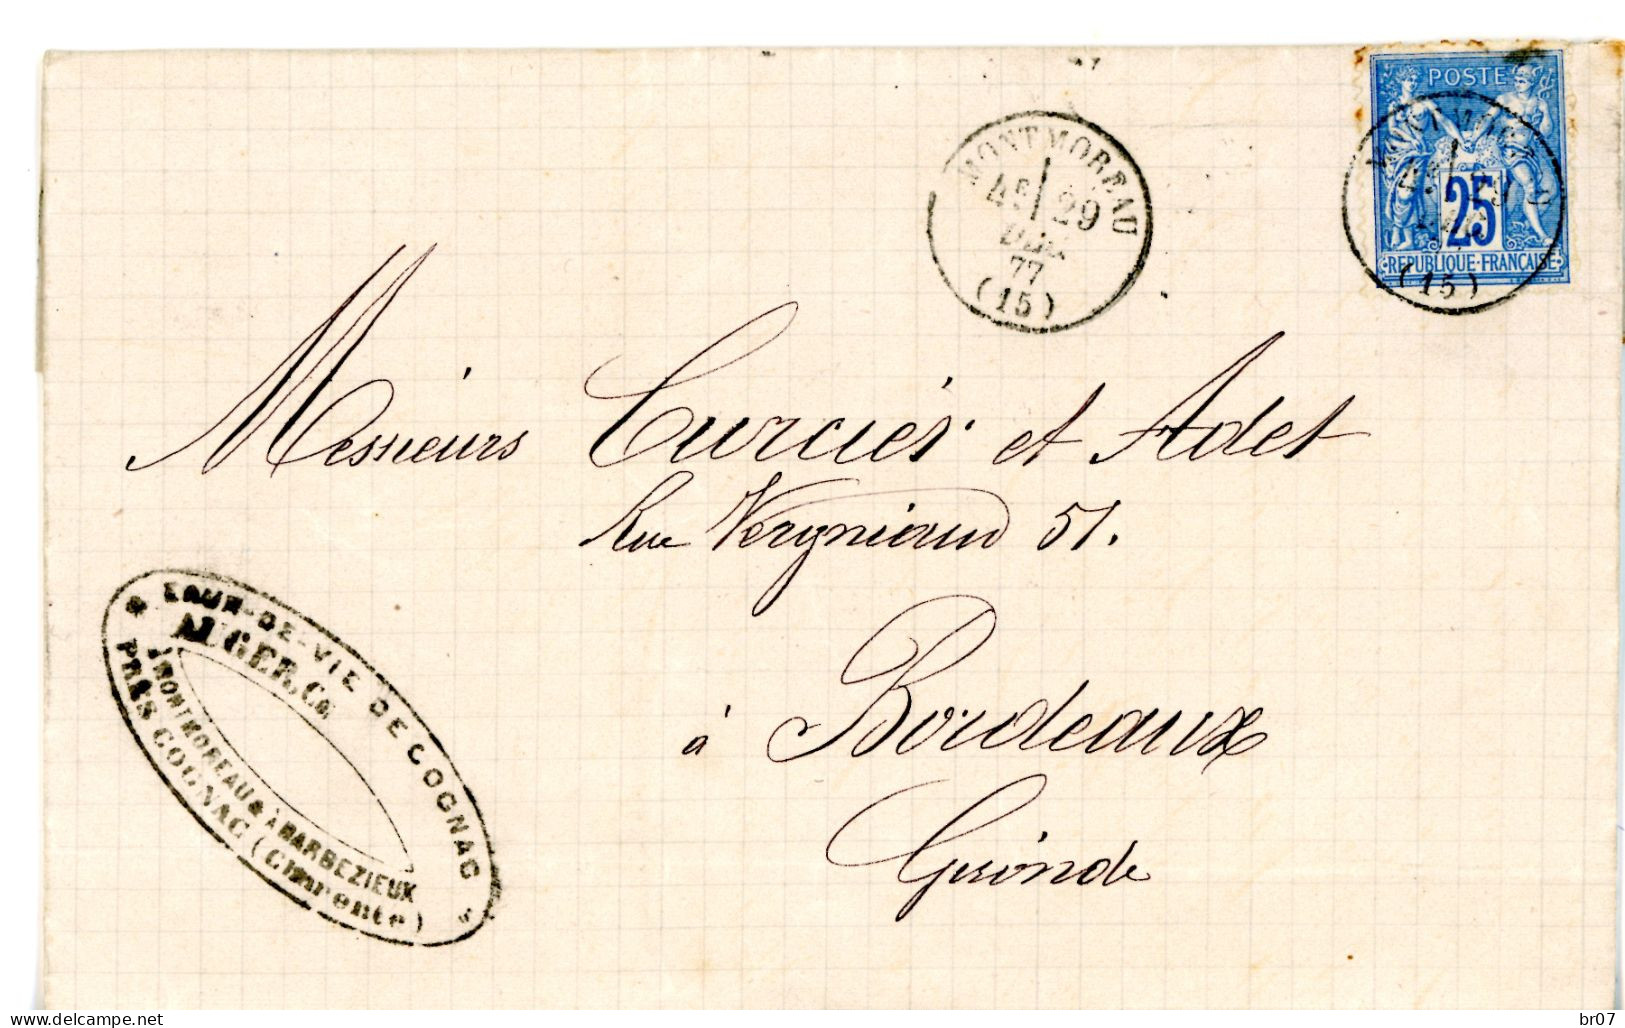 POSTE
25
REPUBLIQUE FRANÇAISE
MONTMOREAU
29
DEC
77
(15)
(15)
Messieurs Curcier et Adet
Rue Vergniaud 51.
à Bordeaux
Gironde
EAUX-DE-VIE DE COGNAC
AUGER, Co.
À MONTMOREAU & À BARBEZIEUX
PRÈS COGNAC (Charente)
delcampe.net
br07